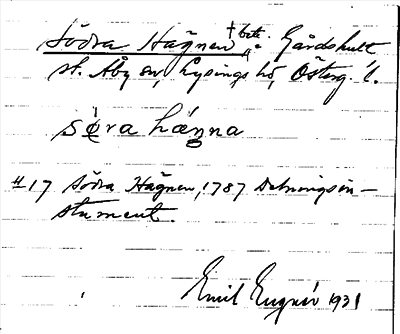 Södra Hagnen † bete. Gårdshult
st. Åby sn, Lysings hd, Österg. l.
sø̀ra hánna
H 17 Södra Hagnen, 1787 Delningsin-
strument.
Emil Eugnér 1931